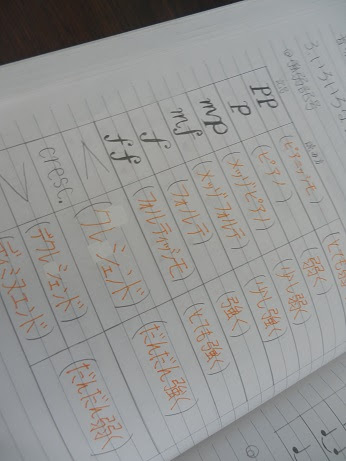 3. いろいろ
pp (ピアニッシモ) (とても弱
p (ピアノ) (弱く)
mp (メッゾピアノ) (少し弱く)
mf (メッゾフォルテ) (少し強く)
f (フォルテ) (強く)
ff (フォルティッシモ) (とても強く)
cresc. (クレシェンド) (だんだん強く)
(デクレシェンド) (だんだん弱く)
ディミヌエンド)